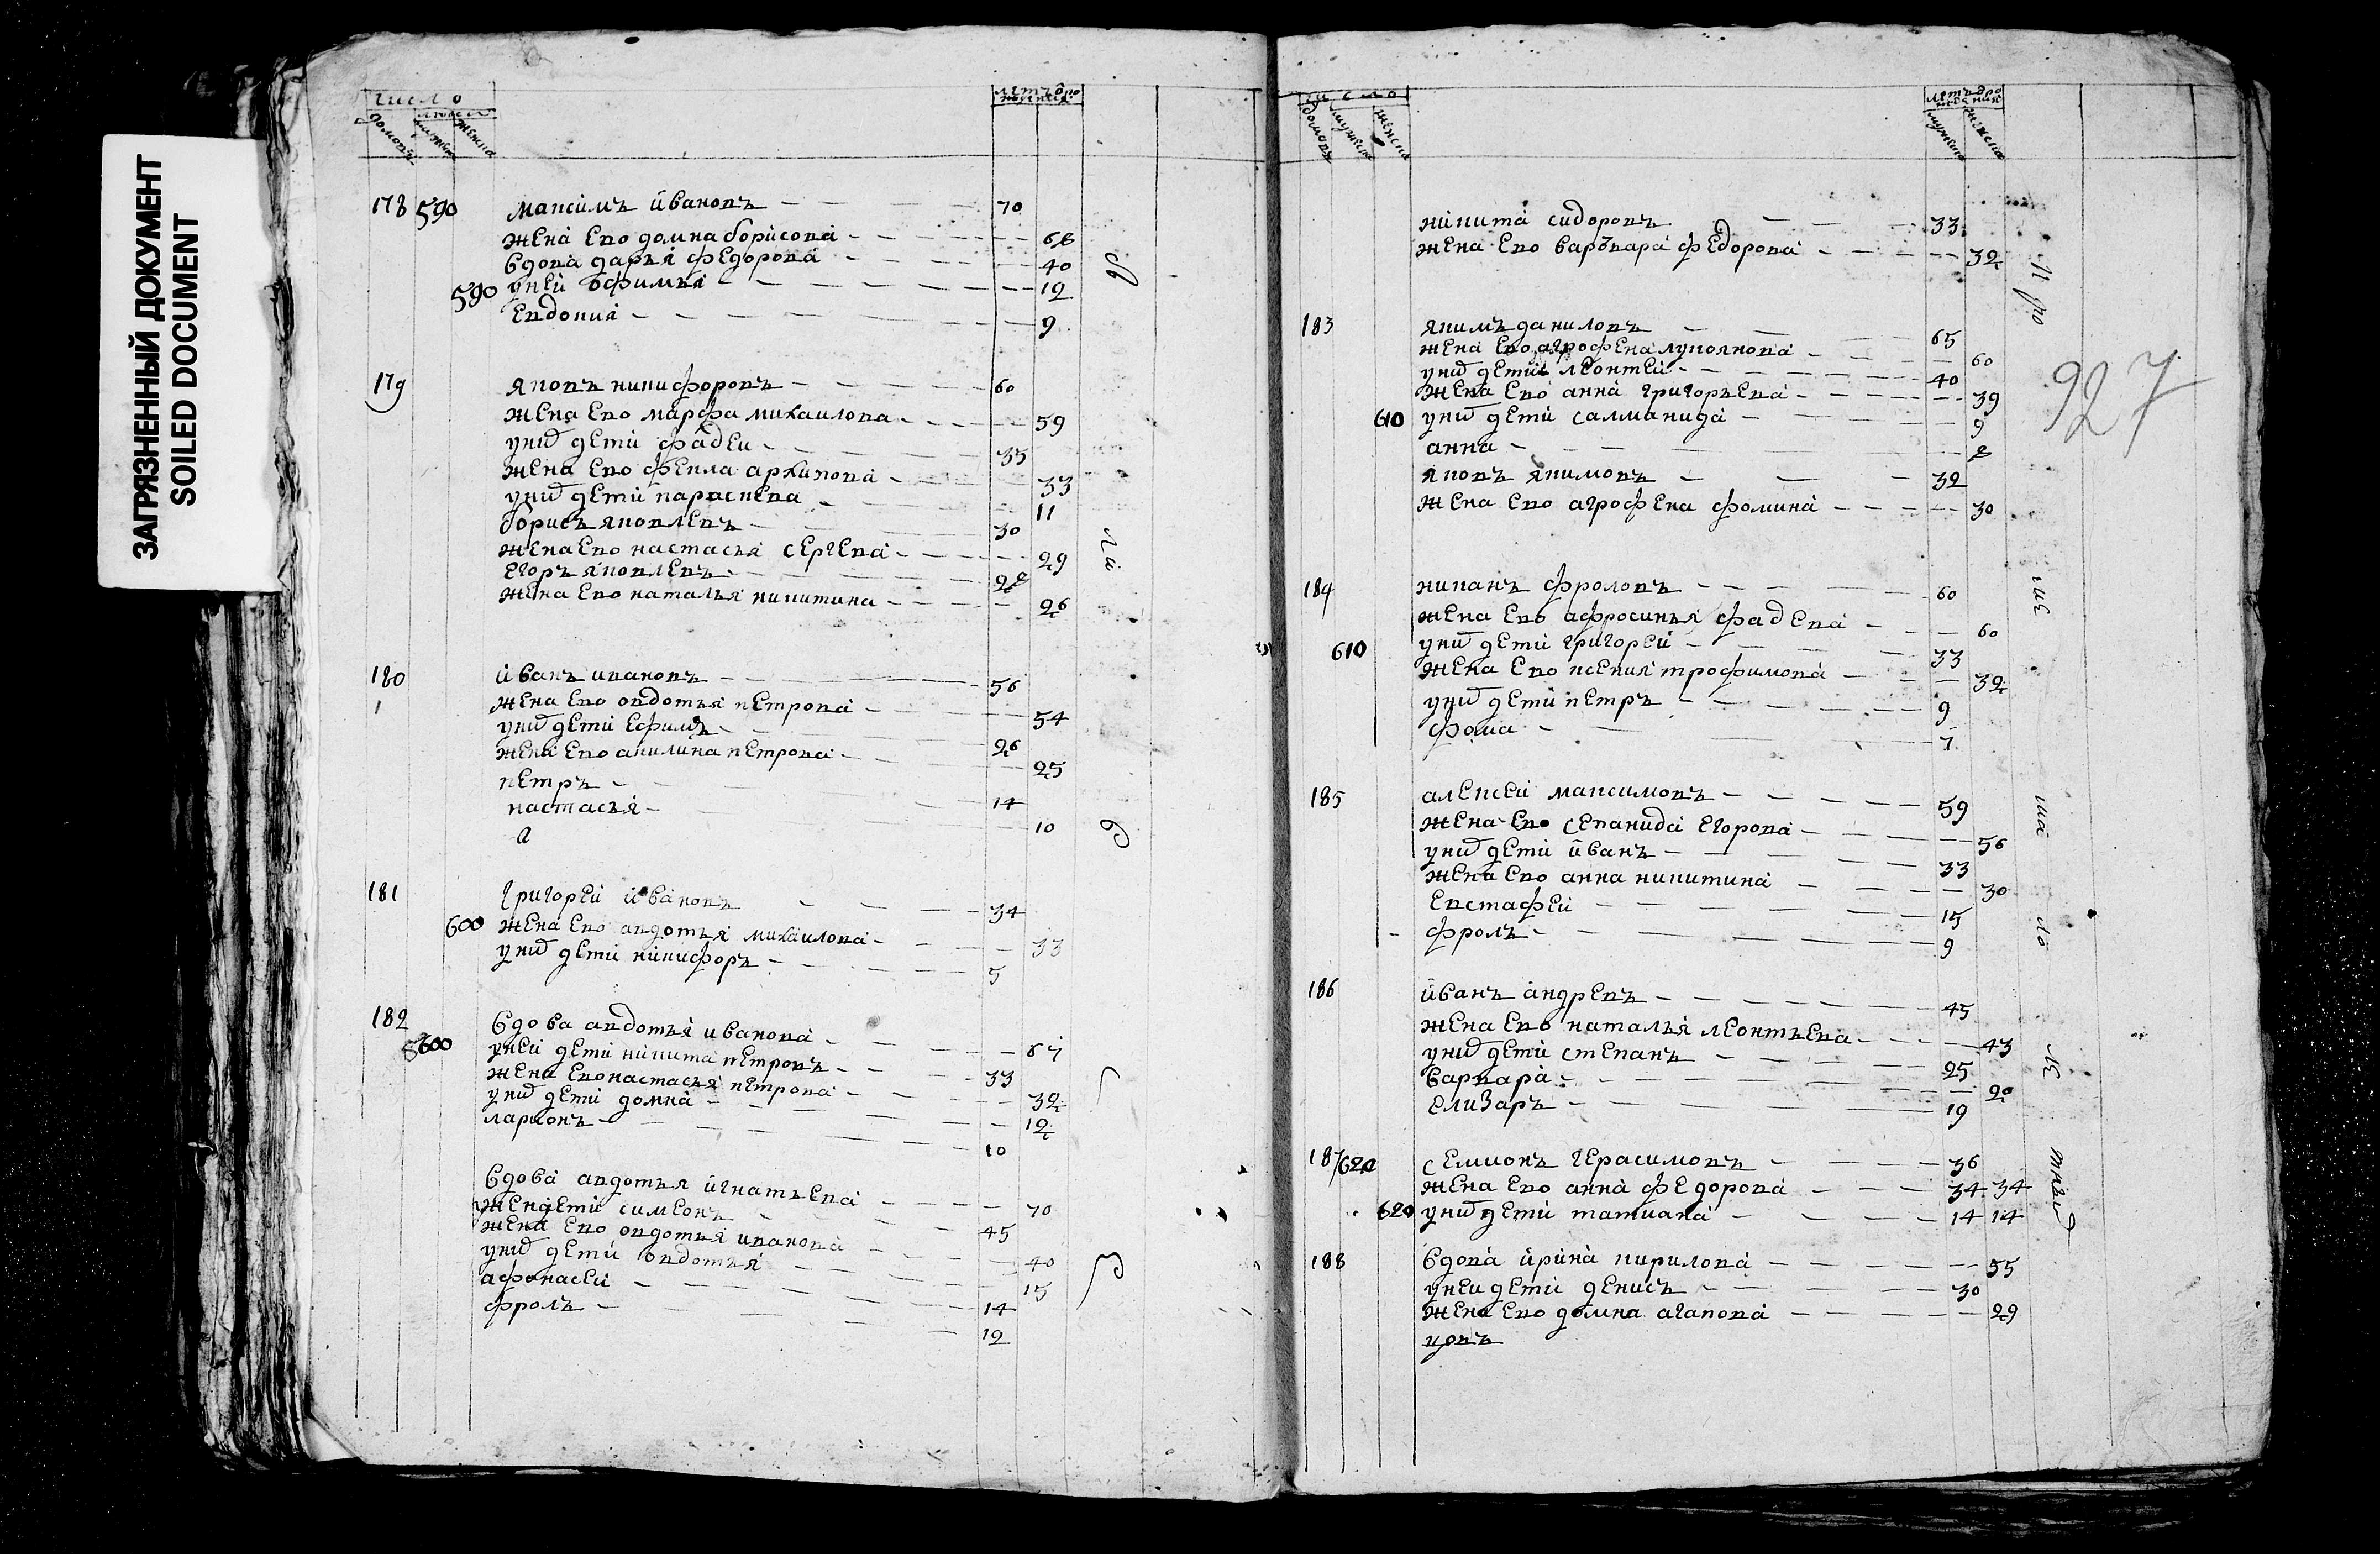 ЗАГРЯЗНЕННЫЙ ДОКУМЕНТ
SOILED DOCUMENT
число
людей
домовъ мужска женска
летъ от рождения
178 590 максимъ ивановъ 70
жена ево домна борисова 68
вдова дарья федорова 40
590 у ней офимья 12
евдокия 9
179 яковъ никифоровъ 60
жена ево марфа михаилова 59
у них дети фадеи 35
жена ево фекла архипова 33
у них дети параскева 11
борисъ яковлевъ 30
жена ево настасья сергева 29
егоръ яковлевъ 28
жена ево наталья никитина 26
180 иванъ ивановъ 56
жена ево овдотья петрова 54
у них дети ефимъ 26
жена ево акилина петрова 25
петръ 14
настасья 10
181 григореи ивановъ 34
600 жена ево авдотья михаилова 33
у них дети никифоръ 5
182 вдова авдотья иванова 67
600 у ней дети никита петровъ 33
жена ево настасья петрова 32
у них дети домна 12
ларионъ 10
вдова авдотья игнатьева 70
дети симеонъ 45
жена ево овдотья иванова 40
у них дети овдотья 15
афонасеи 14
фролъ 12
число
домовъ мужска женска
летъ от рождения
мужска женска
927
никита сидоровъ 33
жена ево варвара федорова 32
183 якимъ даниловъ 65
жена ево агрофена лукоянова 60
у них дети леонтеи 40
жена ево анна григорьева 39
610 у них дети салманида 9
анна 8
яковъ якимовъ 32
жена ево агрофена фомина 30
184 никанъ фроловъ 60
жена ево афросинья фадева 60
610 у них дети григореи 33
жена ево ксения трофимова 32
у них дети петръ 9
фома 7
185 алексеи максимовъ 59
жена ево степанида егорова 56
у них дети иванъ 33
жена ево анна никитина 30
евстафеи 15
фролъ 9
186 иванъ андревъ 45
жена ево наталья леонтьева 43
у них дети степанъ 25
варвара 20
елизаръ 19
187 620 семионъ герасимовъ 36
жена ево анна федорова 34 34
620 у них дети татиана 14 14
188 вдова ирина кирилова 55
у ней дети денисъ 30
жена ево домна агапова 29